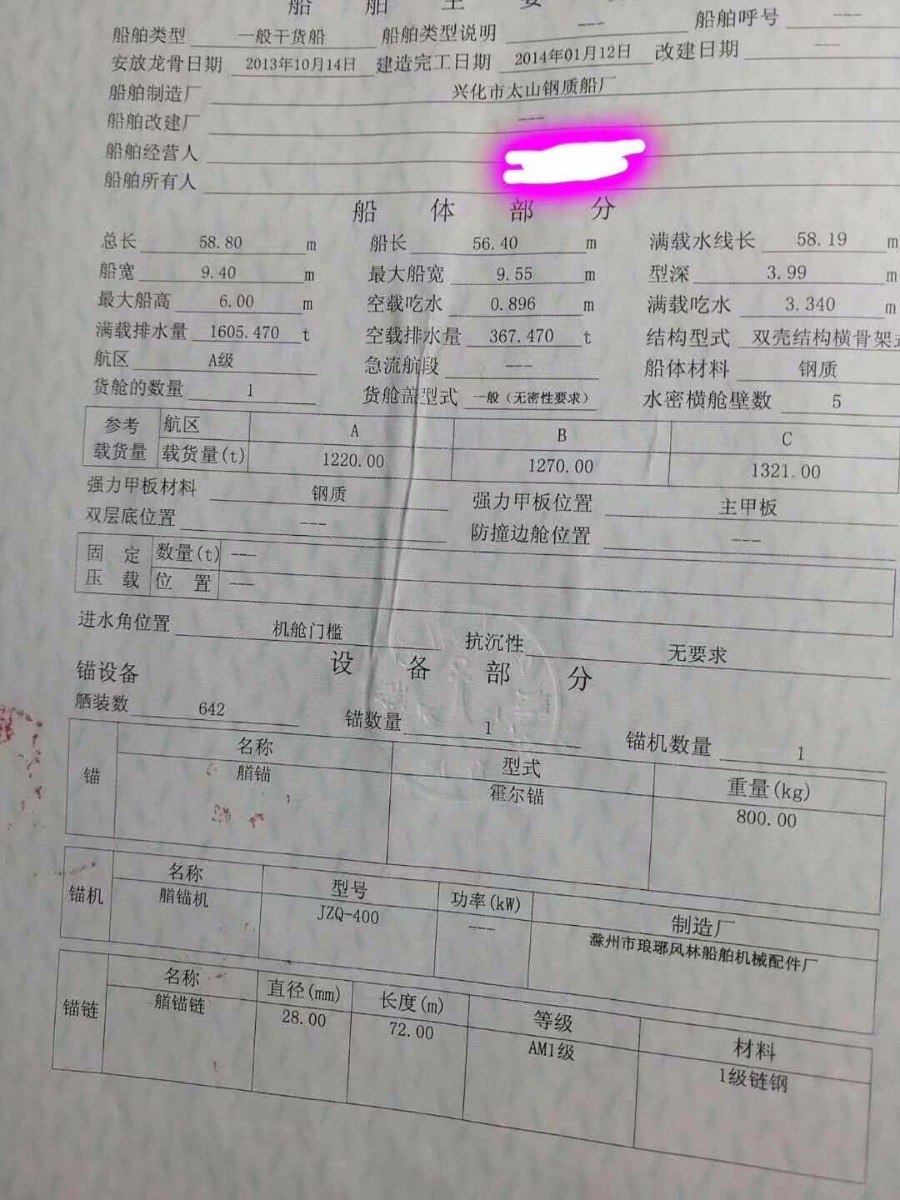 船舶主要
船舶类型 一般干货船 船舶类型说明 --- 船舶呼号 ---
安放龙骨日期 2013年10月14日 建造完工日期 2014年01月12日 改建日期 ---
船舶制造厂 兴化市太山钢质船厂
船舶改建厂 ---
船舶经营人
船舶所有人
船体部分
总长 58.80 m 船长 56.40 m 满载水线长 58.19 m
船宽 9.40 m 最大船宽 9.55 m 型深 3.99 m
最大船高 6.00 m 空载吃水 0.896 m 满载吃水 3.340 m
满载排水量 1605.470 t 空载排水量 367.470 t 结构型式 双壳结构横骨架式
航区 A级 急流航段 --- 船体材料 钢质
货舱的数量 1 货舱盖型式 一般（无密性要求） 水密横舱壁数 5
参考 航区 A B C
载货量 载货量(t) 1220.00 1270.00 1321.00
强力甲板材料 钢质 强力甲板位置 主甲板
双层底位置 --- 防撞边舱位置 ---
固定 数量(t) ---
压载 位置 ---
进水角位置 机舱门槛 抗沉性 无要求
设备部分
锚设备
舾装数 642 锚数量 1 锚机数量 1
锚 名称 型式 重量(kg)
艏锚 霍尔锚 800.00
锚机 名称 型号 功率(kW) 制造厂
艏锚机 JZQ-400 --- 滁州市琅琊风林船舶机械配件厂
锚链 名称 直径(mm) 长度(m) 等级 材料
艏锚链 28.00 72.00 AM1级 1级链钢